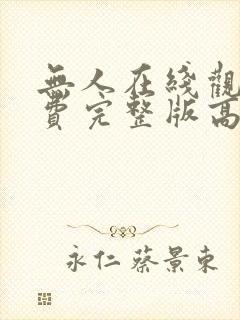 無人在綫觀
費完整版高
永仁蔡景東